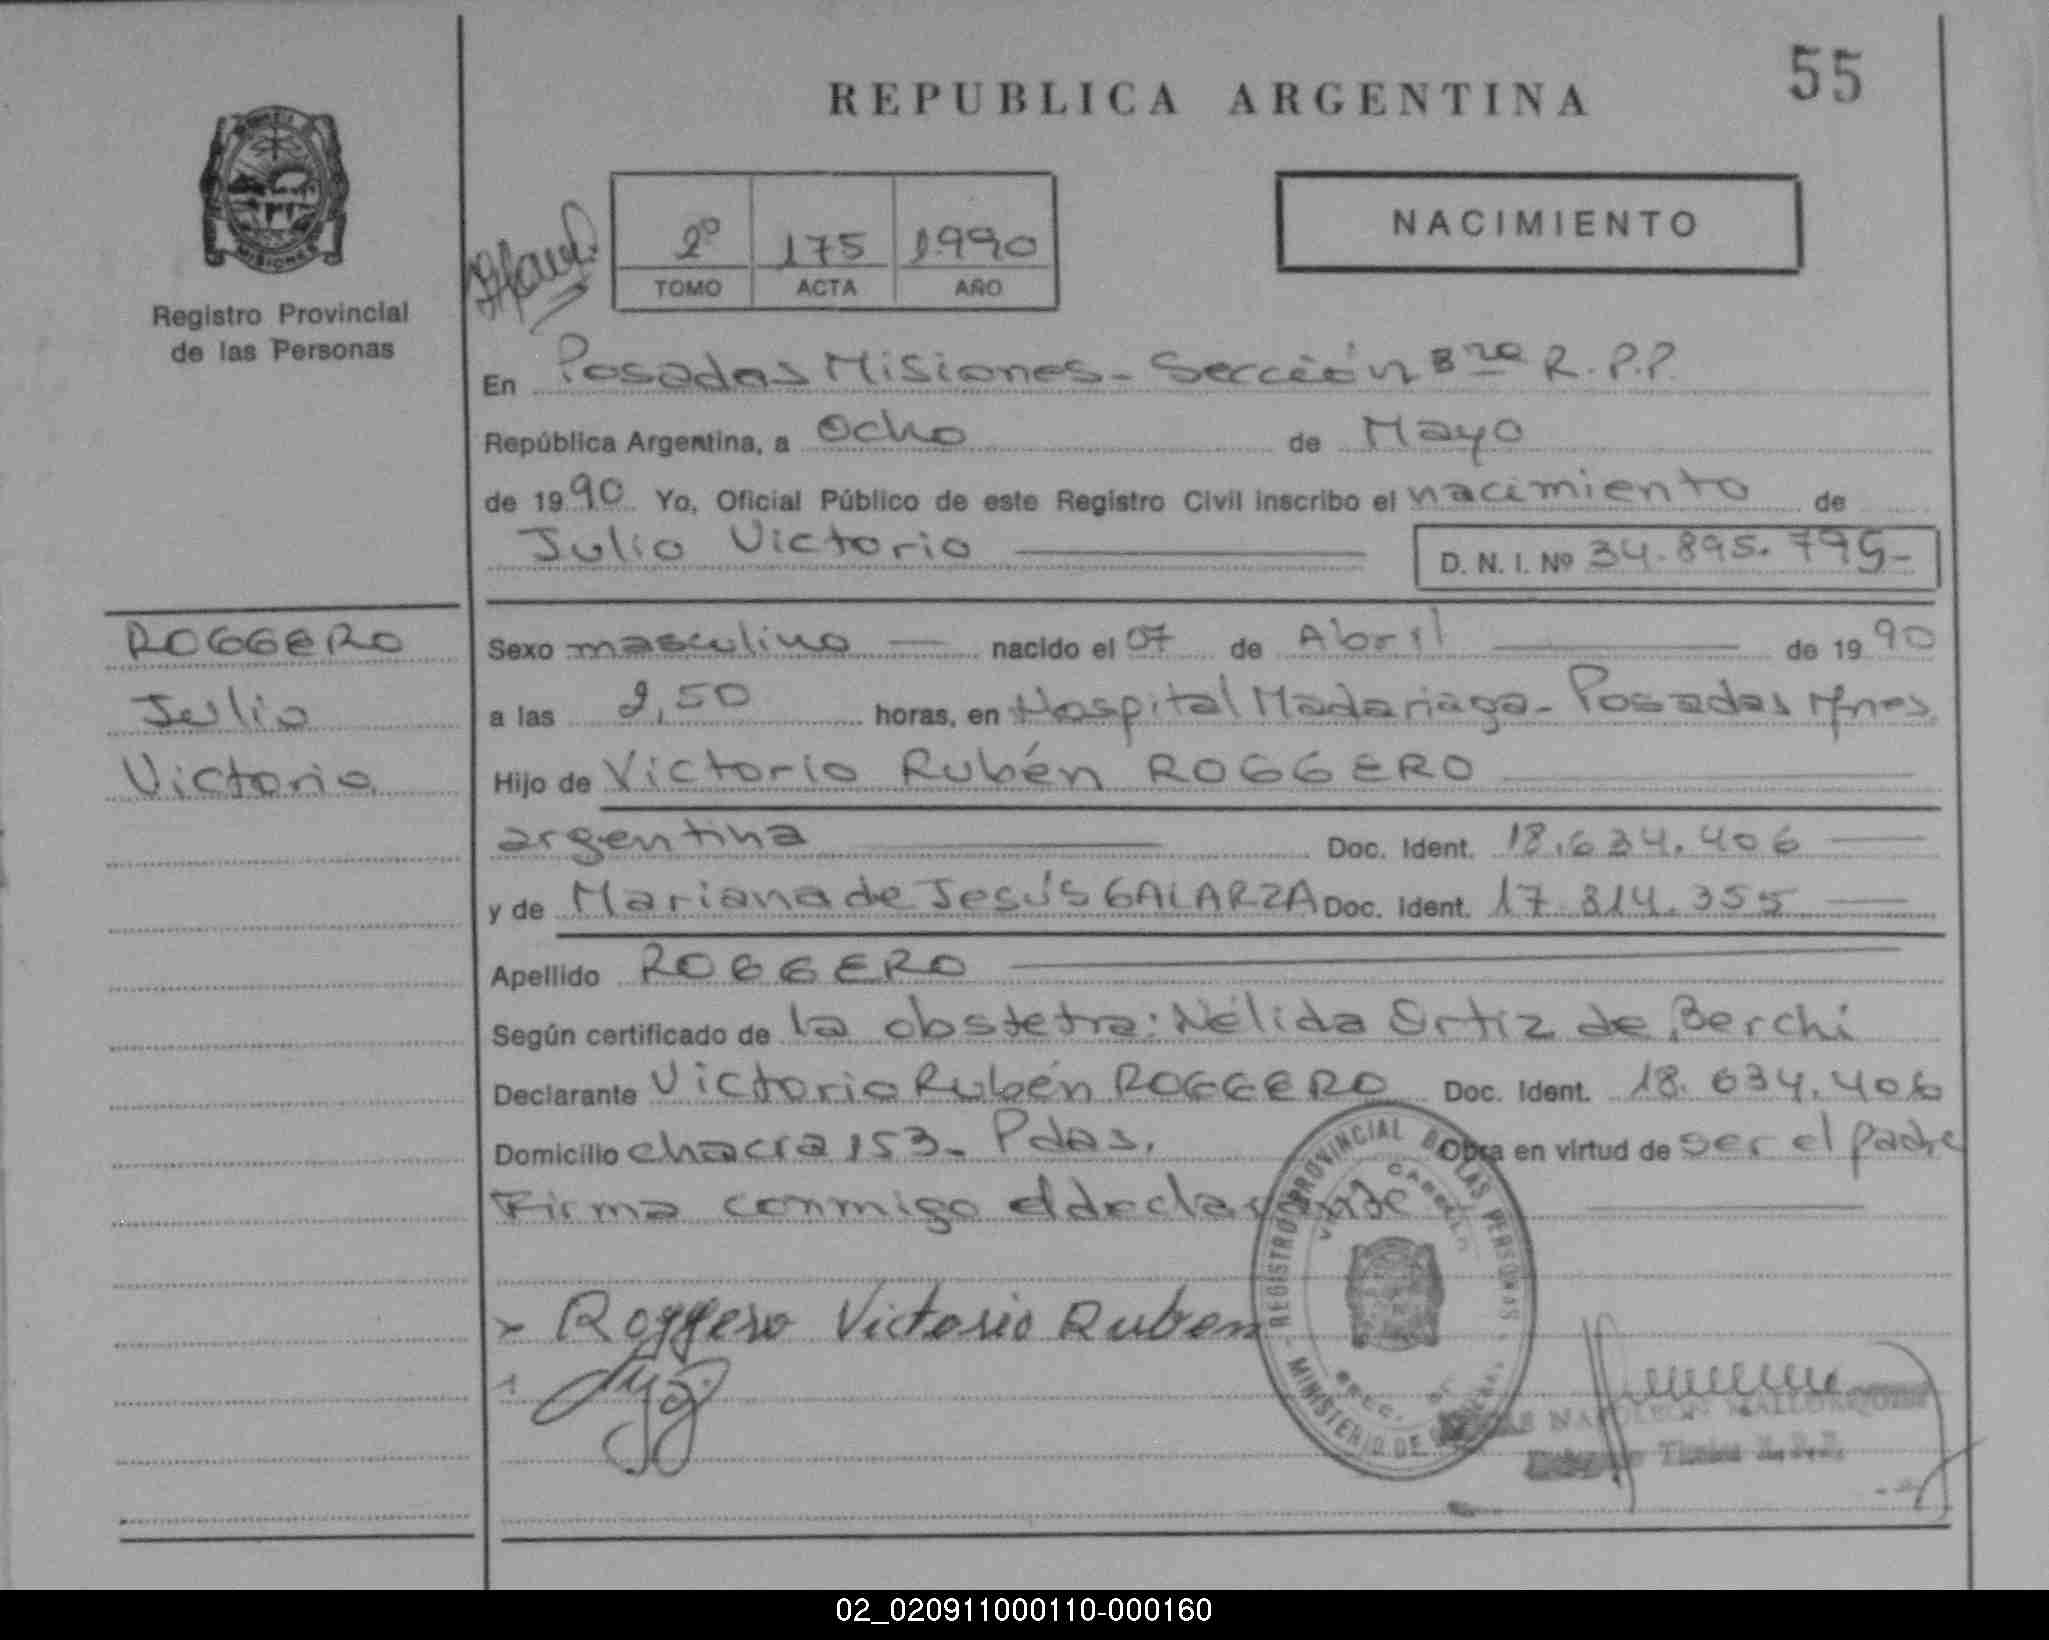 55
REPUBLICA ARGENTINA
NACIMIENTO
2º 175 1990
TOMO ACTA AÑO
MISIONES
Registro Provincial
de las Personas
En Posadas Misiones - Sección 3ra R.P.P.
República Argentina, a Ocho de Mayo
de 1990 Yo, Oficial Público de este Registro Civil inscribo el nacimiento de
Julio Victorio D. N. I. Nº 34.895.795-
ROGGERO
Julio
Victorio
Sexo masculino nacido el 07 de Abril de 1990
a las 2,50 horas, en Hospital Madariaga - Posadas Mnes.
Hijo de Victorio Rubén ROGGERO
argentina Doc. Ident. 18.634.406
y de Mariana de Jesús GALARZA Doc. Ident. 17.814.355
Apellido ROGGERO
Según certificado de la obstetra: Nélida Ortiz de Berchi
Declarante Victorio Rubén ROGGERO Doc. Ident. 18.634.406
Domicilio chacra 153 - Pdas. Obra en virtud de ser el padre
Firma conmigo el declarante
Roggero Victorio Ruben
REGISTRO PROVINCIAL DE LAS PERSONAS
MINISTERIO DE
NAPOLEON
R.P.P.
02_020911000110-000160